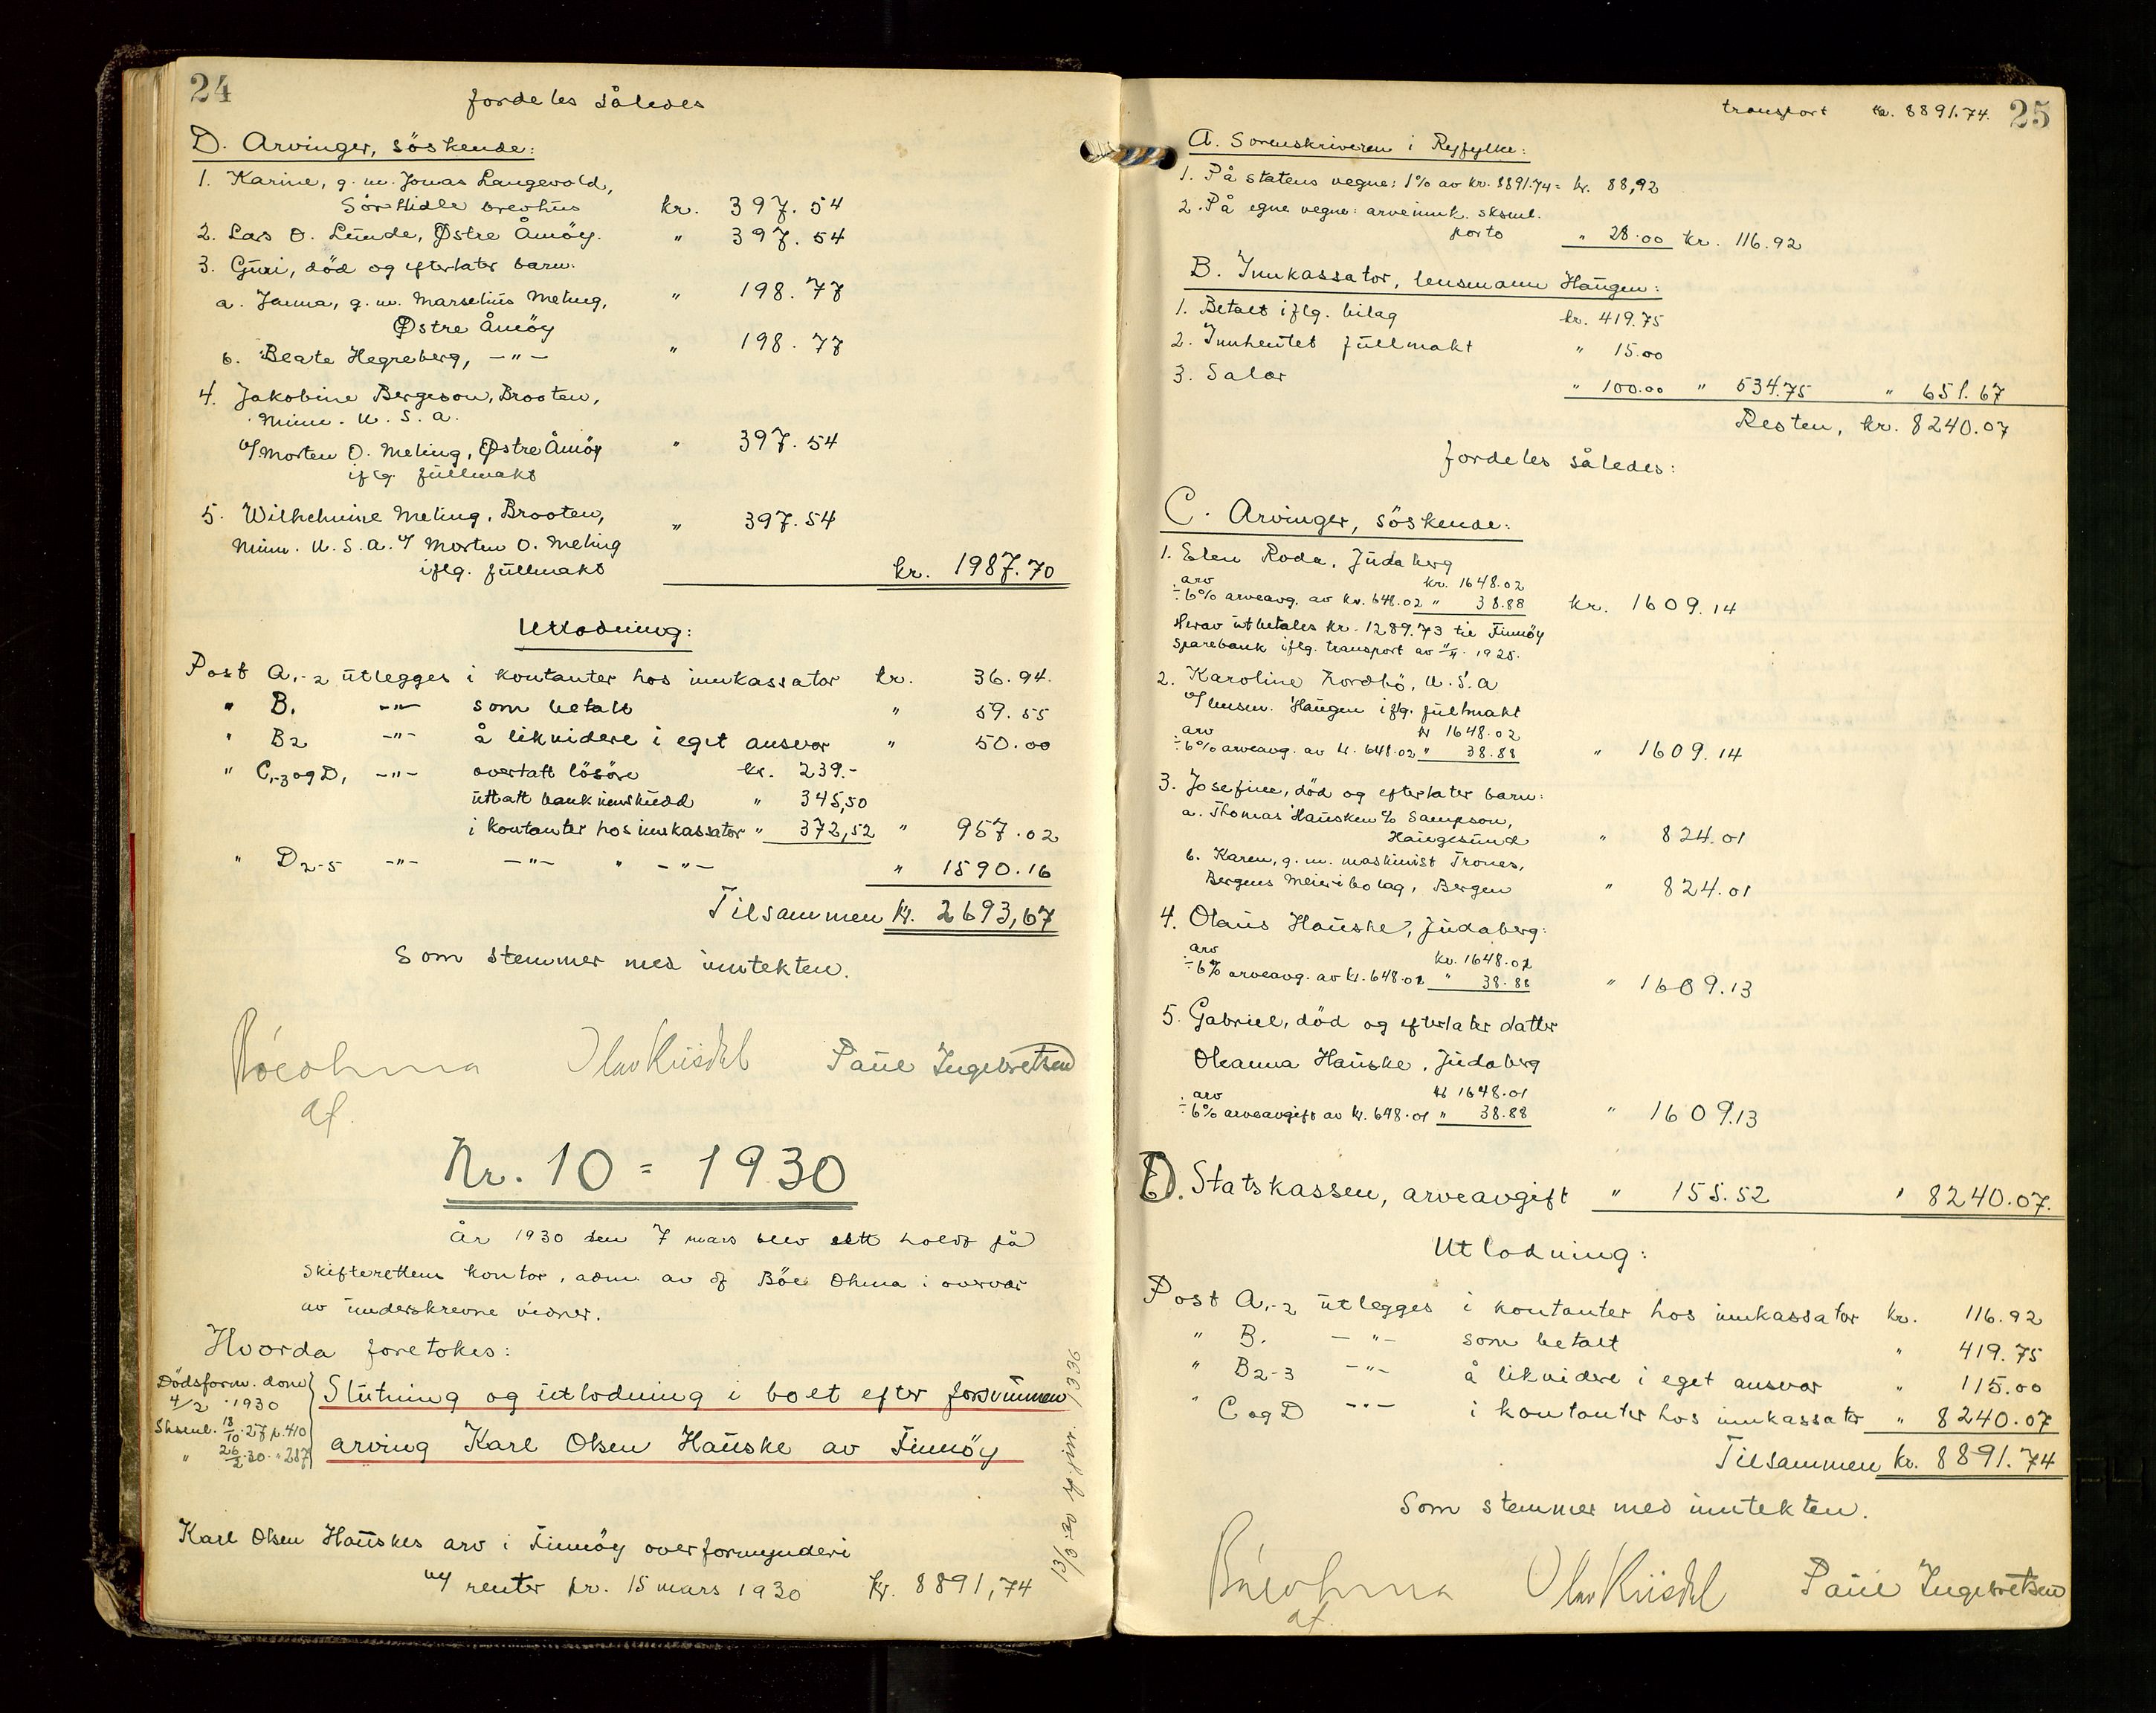 24
fordeles således
D. Arvinger, söskende:
1. Karine, g. m. Jonas Langevold,
Sör Hidle brevhus kr. 397.54
2. Lars O. Lunde, Østre Åmöy. " 397.54
3. Guri, död og efterlater barn:
a. Janna, g. m. Marselius Meling, " 198.77
Østre Åmöy
b. Beate Hegreberg, -"- " 198.77
4. Jakobine Bergeson, Brooten,
Minn. U.S.A.
v/ Morten O. Meling, Østre Åmöy " 397.54
iflg. fullmakt
5. Wilhelmine Meling, Brooten, " 397.54
Minn. U.S.A. v/ Morten O. Meling
iflg. fullmakt kr. 1987.70
Utlodning:
Post A1-2 utlegges i kontanter hos innkassator kr. 36.94.
" B1 -"- som betalt " 59.55
" B2 -"- å likvidere i eget ansvar " 50.00
" C1-3 og D1 -"- overtatt lösöre kr. 239.-
uttatt bankinnskudd " 345,50
i kontanter hos innkassator " 372,52 " 957.02
" D2-5 -"- -"- " -"- " 1590.16
Tilsammen kr. 2693,67
Som stemmer med inntekten.
Böe Ohma Olav Kiisdal Paul Ingebretsen
af.
Nr. 10 = 1930
År 1930 den 7 mars blev rett holdt på
skifterettens kontor, adm. av df Böe Ohma i overvær
av underskrevne vidner.
Hvorda foretokes:
Dödsform. dom
4/2 1930
Sksml. 18/10.27 p. 410
" 26/2.30. " 287
Slutning og utlodning i boet efter forsvunnen
arving Karl Olsen Hauske av Finnöy
13/3.30 1336
Karl Olsen Hauskes arv i Finnöy overformynderi
m/ renter pr. 15 mars 1930 kr. 8891,74
transport kr. 8891.74. 25
A. Sorenskriveren i Ryfylke:
1. På statens vegne: 1% av kr. 8891.74 = kr. 88,92
2. På egne vegne: arveinnk. sksml.
porto " 28.00 kr. 116.92
B. Innkassator, lensmann Haugen:
1. Betalt iflg. bilag kr. 419.75
2. Innhentet fullmakt " 15.00
3. Salær " 100.00 " 534.75 " 651.67
Resten, kr. 8240.07
fordeles således:
C. Arvinger, söskende:
1. Elen Roda, Judaberg
arv kr. 1648.02
÷ 6% arveavg. av kr. 648.02 " 38.88 kr. 1609.14
Herav utbetales kr. 1289.73 til Finnöy
Sparebank iflg. transport av 1925.
2. Karoline Nordbö, U.S.A
v/ lensm. Haugen iflg. fullmakt
arv kr 1648.02
÷ 6% arveavg. av kr. 648.02 " 38.88 " 1609.14
3. Josefine, död og efterlater barn:
a. Thomas Hausken c/o Sampson,
Haugesund " 824.01
b. Karen, g. m. maskinist Trones,
Bergens Meieribolag, Bergen " 824.01
4. Olaus Hauske, Judaberg:
arv kr. 1648.01
÷ 6% arveavg. av kr. 648.01 " 38.88 " 1609.13
5. Gabriel, död og efterlater datter
Oleanna Hauske, Judaberg
arv kr 1648.01
÷ 6% arveavgift av kr. 648.01 " 38.88 " 1609.13
D. Statskassen, arveavgift " 155.52 " 8240.07.
Utlodning:
Post A1-2 utlegges i kontanter hos innkassator kr. 116.92
" B1 -"- som betalt " 419.75
" B2-3 -"- å likvidere i eget ansvar " 115.00
" C og D -"- i kontanter hos innkassator " 8240.07
Tilsammen kr. 8891.74
Som stemmer med inntekten.
Böe Ohma Olav Kiisdal Paul Ingebretsen
af.